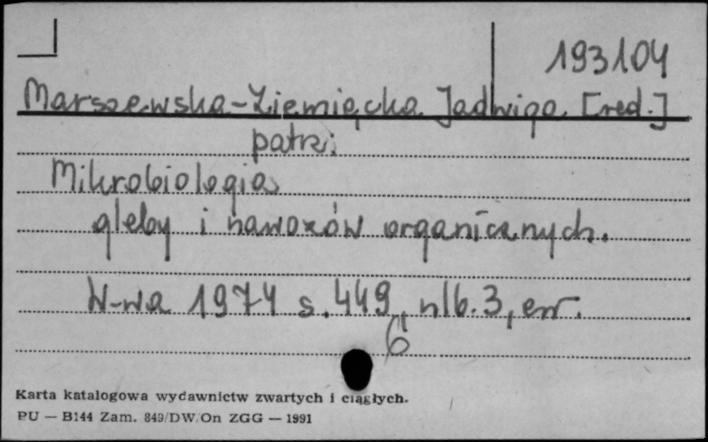 193104
Marszewska-Ziemięcka Jadwiga [red.]
patrz:
Mikrobiologia
gleby i nawozów organicznych.
W-wa 1974 s. 449, nlb. 3, err.
6
Karta katalogowa wydawnictw zwartych i ciągłych.
PU — B144 Zam. 849/DW/On ZGG — 1991